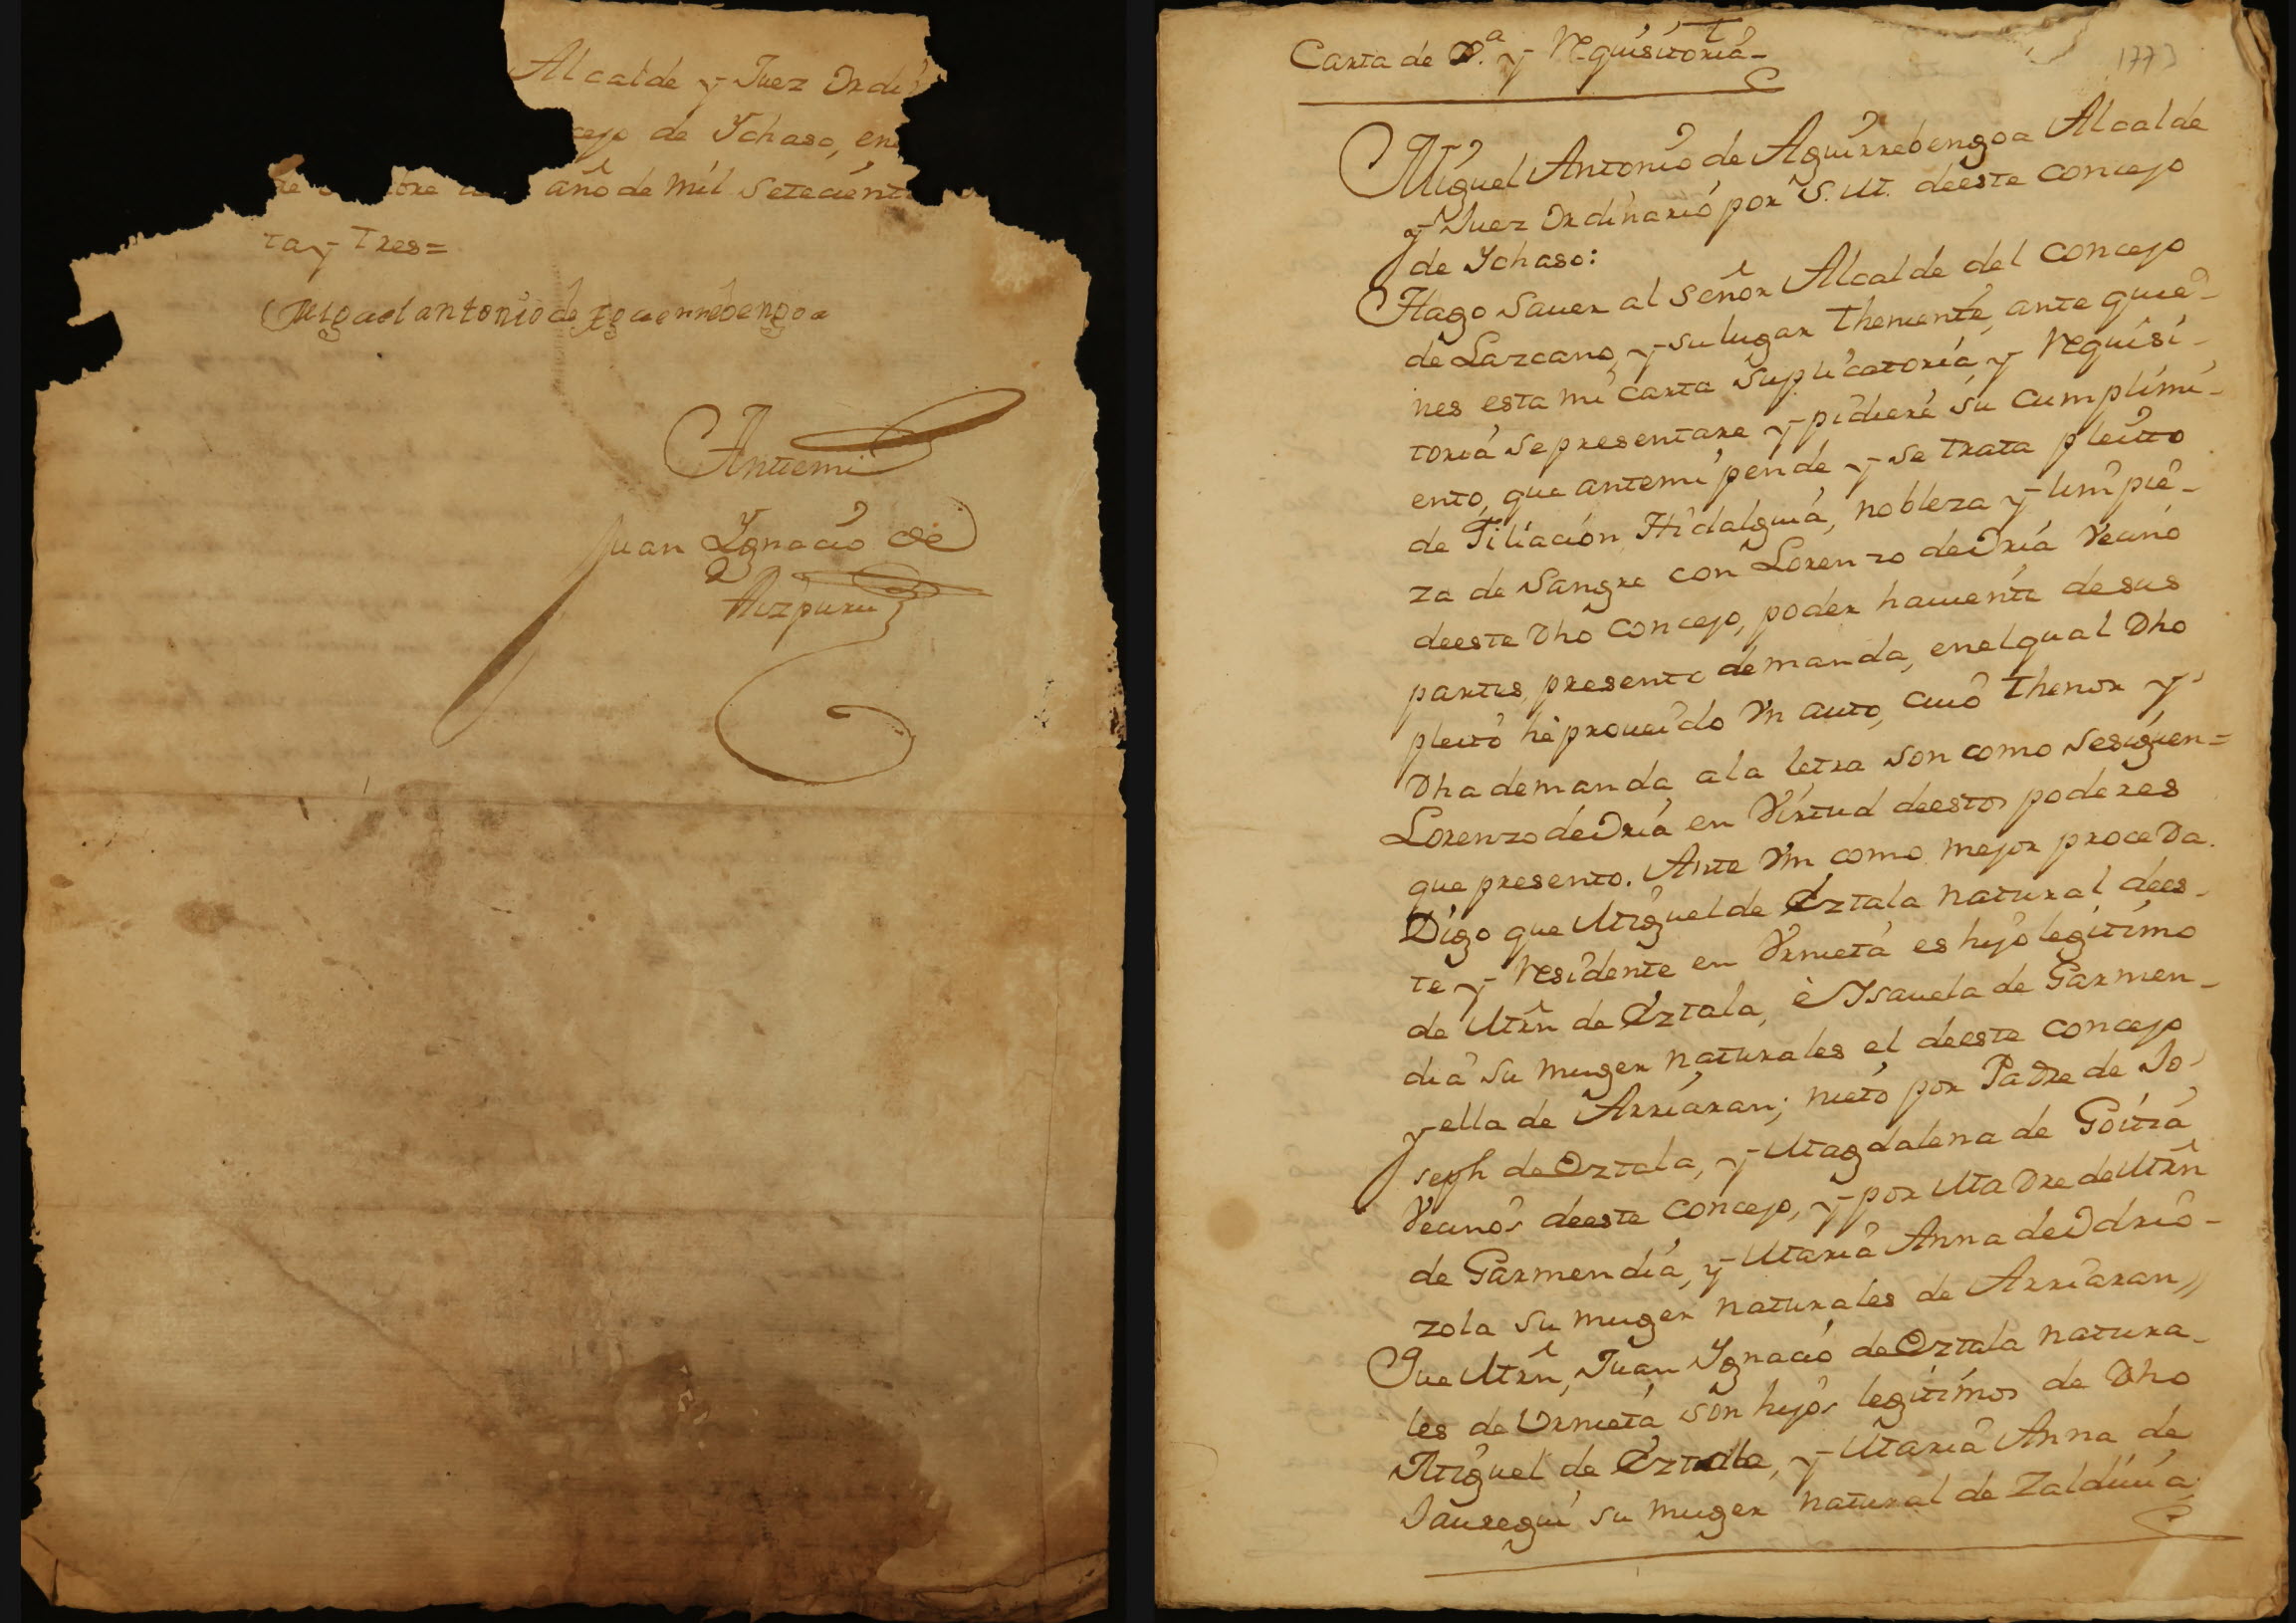 Alcalde y Juez Ordi
cejo de Ychaso, en
de bre año de mil setecient
ta y tres=
Miguel antonio de Aguirrebengoa
Antemi
Juan Ygnacio de
Aizpuru
Carta de Xª y Requisitoria
1773
Miguel Antonio de Aguirrebengoa Alcalde
y Juez Ordinario por S.M. deeste concejo
de Ychaso:
Hago saver al señor Alcalde del concejo
de Lazcano, y su lugar theniente, ante quie-
nes esta mi carta suplicatoria, y Requisi-
toria sepresentare y pidiere su cumplimi-
ento, que antemi pende y se trata pleito
de Filiacion Hidalguia, nobleza y limpie-
za de sangre con Lorenzo deOria Vecino
deeste dho concejo, poder haviente desus
partes, presente demanda, enelqual dho
pleito hé proveido Vn auto, cuio thenor y
dha demanda ala letra son como sesiguen=
Lorenzo deOria en Virtud deestos poderes
que presento. Ante Vm como mejor proceda.
Digo que Miguel de Oztala natural dees-
te y Residente en Vrnieta es hijo legitimo
de Mrñ de Oztala, è Ysavela de Garmen-
dia su muger naturales el deeste concejo
y ella de Arriaran; nieto por Padre de Jo-
seph de Oztala, y Magdalena de Goitia
Vecinos deeste concejo, y por Madre de Mrñ
de Garmendia, y Maria Anna deOdrio-
zola su muger naturales de Arriaran //
Que Mrñ, Juan Ygnacio de Oztala natura-
les de Urnieta son hijos legitimos de Dho
Miguel de Oztala, y Maria Anna de
Jauregui su muger natural de Zalduvia